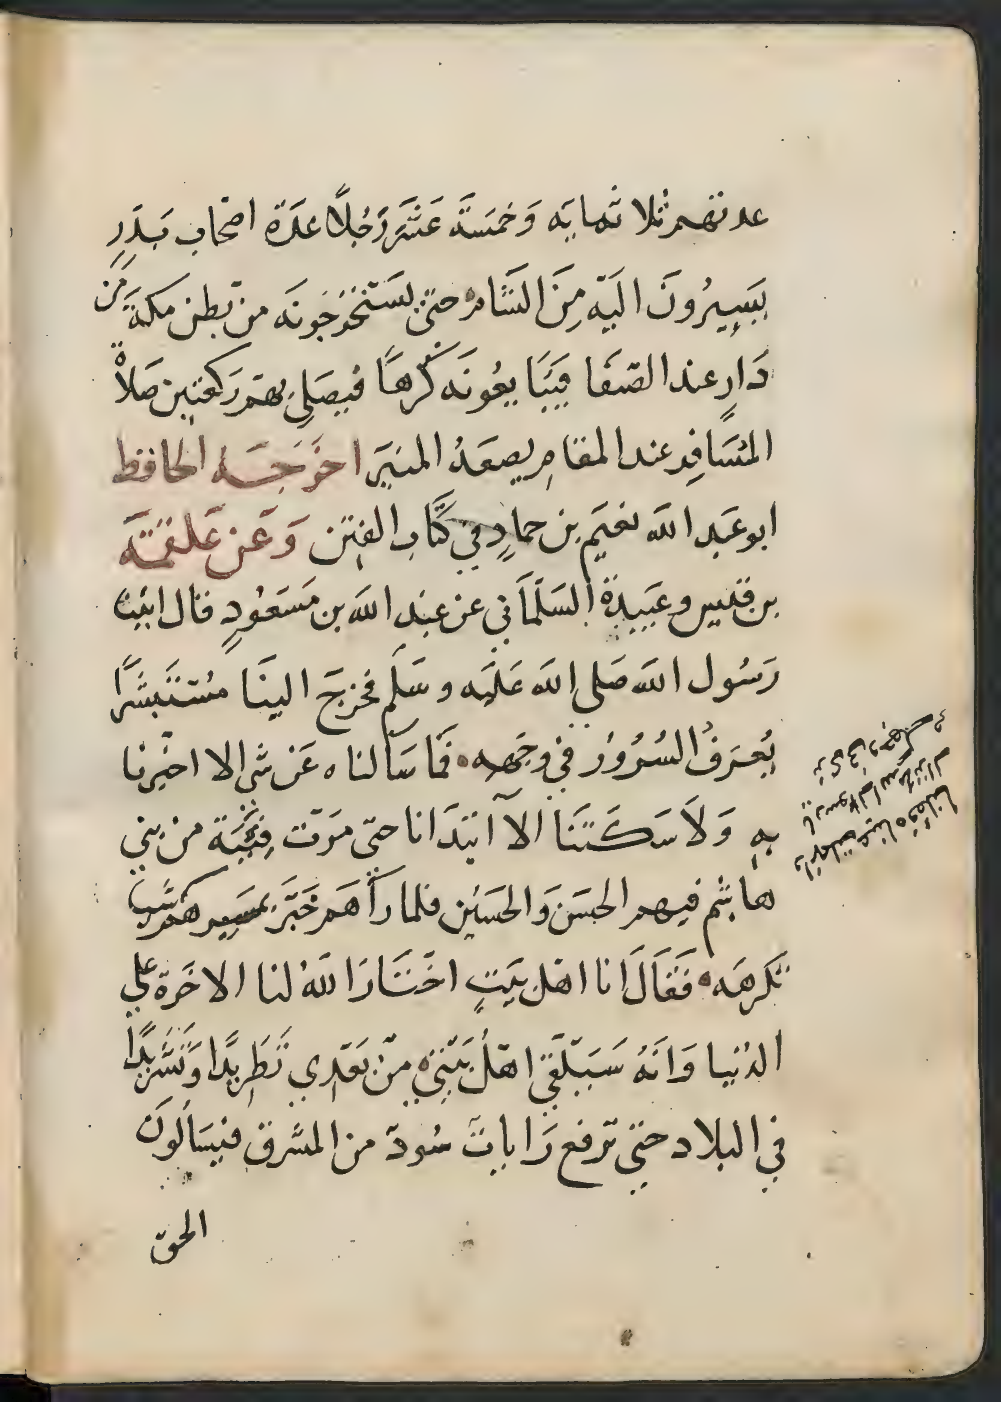 عدتهم ثلاثماية وَخمسَة عَشَرَ رَجُلًا عدَة اصحاب بَدرٍ
يَسيرُونَ اليَه مِنَ الشَام حتىٰ يَستَخرجُونَه من بَطن مَكة مِن
دَارٍ عند الصَفَا فيَبَايعُونَه كرهًا فيصَلي بهم رَكعتين صَلاة
المُسَافِر عند المقام ثم يصعَدُ المنبَر اخرَجَهُ الحافظ
ابو عَبد الله نعَيم بن حمادٍ في كتَاب الفِتَن وَعَن عَلقمَة
بن قيس وعَبيدة السَلمَاني عن عبد الله بن مَسعُودٍ قال اتينا
رَسُول الله صَلى الله عَليَه وسَلم فخرجَ الينَا مُستَبشرًا
يُعرَفُ السُرُورُ في وجَهه فمَا سَالناه عَن شي الا اخبرنا
بهِ وَلاَ سَكتَنَا الاّ ابتَدَانا حتىٰ مرَت فِتيَة من بني
هاشم فيهم الحسَن وَالحسَين فلما رَآهم خَبَّرَ بمَسيرهم
نَكرهَه فَقَالَ انا اهل بَيتٍ اختَارَ اللهُ لنا الاخَرة علي
الدُنيا وَانَهُ سَيَلقَى اهلُ بَيتي من بَعدي تَطريدًا وَتَشريدًا
في البلاد حتىٰ تُرفع رَايات سُود من المشرق فيَسَالُونَ
الحق